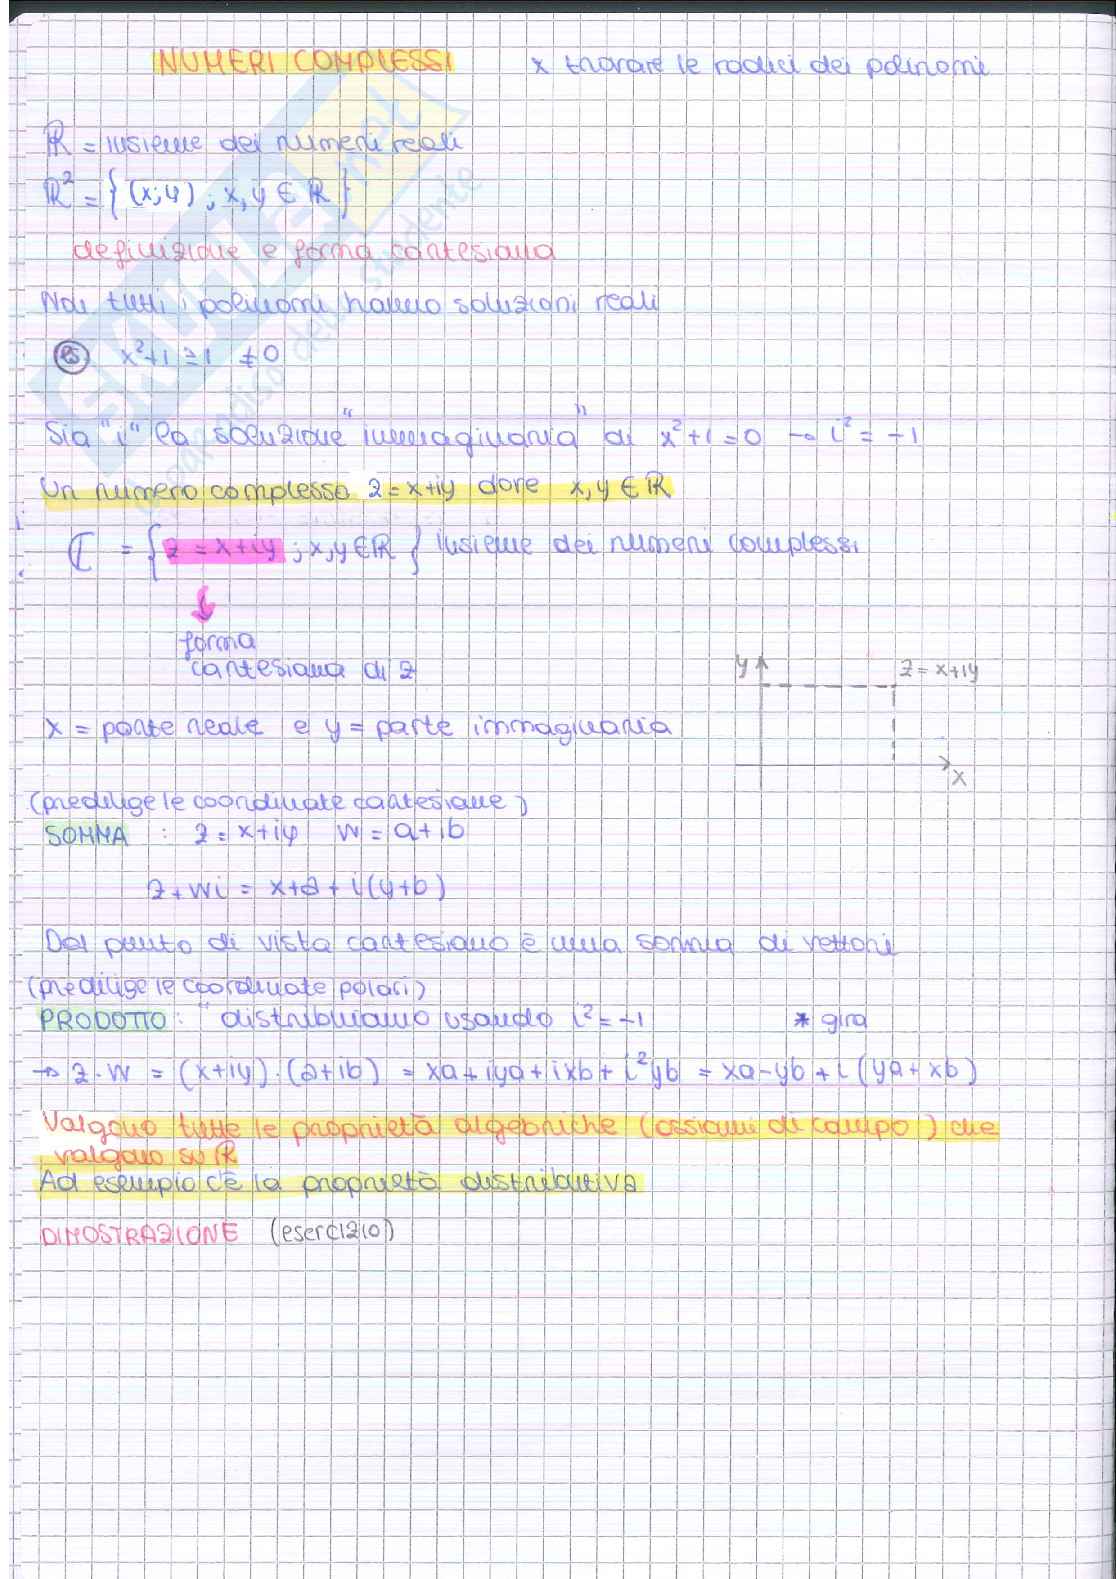 NUMERI COMPLESSI x trovare le radici dei polinomi
ℝ = insieme dei numeri reali
ℝ² = {(x;y) ; x,y ∈ ℝ}
definizione e forma cartesiana
Non tutti i polinomi hanno soluzioni reali
es x²+1 ≥ 1 ≠ 0
Sia "i" la soluzione "immaginaria" di x²+1 = 0 → i² = -1
Un numero complesso z = x+iy dove x,y ∈ ℝ
ℂ = {z = x+iy ; x,y ∈ ℝ} insieme dei numeri complessi
forma
cartesiana di z
y z = x+iy
x
x = parte reale e y = parte immaginaria
(predilige le coordinate cartesiane)
SOMMA : z = x+iy w = a+ib
z+wi = x+a + i(y+b)
Dal punto di vista cartesiano è una somma di vettori
(predilige le coordinate polari)
PRODOTTO : " distribuiamo usando i² = -1 * gira
→ z·w = (x+iy)·(a+ib) = xa+iya+ixb+i²yb = xa-yb+i(ya+xb)
Valgono tutte le proprietà algebriche (assiomi di campo) che
valgono su ℝ
Ad esempio c'è la proprietà distributiva
DIMOSTRAZIONE (esercizio)